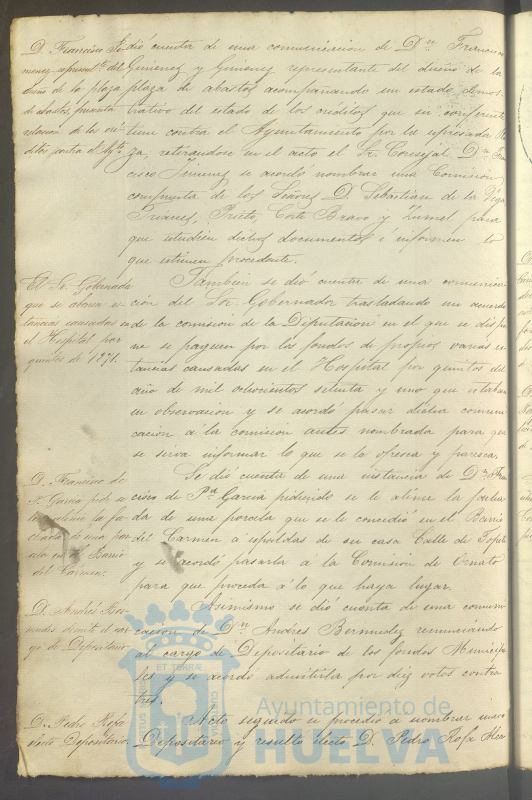 D. Francisco Gi-
menez representte. del
dueño de la plaza
de abastos, presenta
relacion de los cre-
ditos contra el Aytto.
Se dió cuenta de una comunicacion de Dn. Francisco
Gimenez y Gimenez representante del dueño de la
plaza de abastos acompañando un estado demos-
trativo del estado de los créditos que su conferente
tiene contra el Ayuntamiento por la espresada Pla-
za, retirandose en el acto el Sr. Concejal Dn. Fran-
cisco Jimenez se acordó nombrar una Comision
compuesta de los Señores D. Sebastian de la Vega
Prieto, Corte Bravo y para
que estudien dichos documentos é informen lo
que estimen procedente.
El Sr. Gobernador
que se abonen es-
tancias causadas en
el Hospital por
quintos de 1871.
Tambien se dió cuenta de una comunica-
cion del Sor. Gobernador trasladando un acuerdo
de la comision de la Diputacion en el que se dispo-
ne se paguen por los fondos de propios varias es-
tancias causadas en el Hospital por quintos del
año de mil ochocientos setenta y uno que estaban
en observacion y se acordó pasar dicha comuni-
cacion á la comision antes nombrada para que
se sirva informar lo que se le ofrezca y parezca.
D. Francisco de
P. Garcia pide se
le alinie la fa-
chada de una par-
cela en el Barrio
del Carmen.
Se dió cuenta de una instancia de Dn. Fran-
cisco de Pa. Garcia pidiendo se le alinie la facha-
da de una parcela que se le concedió en el Barrio
del Carmen á espaldas de su casa Calle de
y se acordó pasarla á la Comision de Ornato
para que proceda á lo que haya lugar.
D. Andrés Ber-
mudez dimite el car-
go de Depositario
Asimismo se dió cuenta de una comuni-
cacion de Dn. Andres Bermudez renunciando
al cargo de Depositario de los fondos Municipa-
les y se acordó admitirla por diez votos contra
tres.
D. Pedro Rofa
electo Depositario.
Acto seguido se procedió a nombrar nuevo
Depositario y resultó electo D. Pedro Rofa
ET TERRÆ
Ayuntamiento de
HUELVA